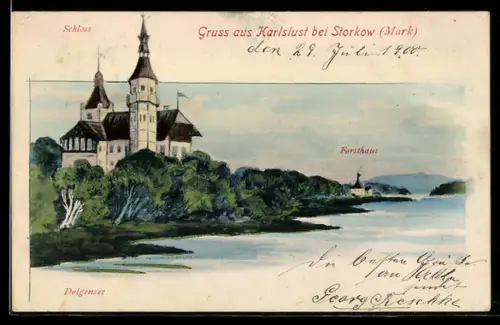 Schloss
Gruss aus Karlslust bei Storkow (Mark)
den 29. Juli 1900.
Forsthaus
Die besten Grüße
an
Dolgensee
Georg Reschke